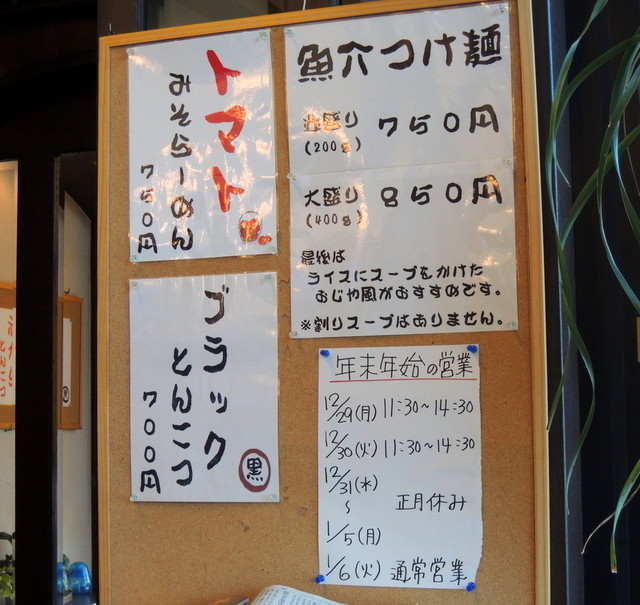 トマト
みそらーめん
750円
魚介つけ麺
並盛り 750円
(200g)
大盛り 850円
(400g)
最後は
ライスにスープをかけた
おじや風がおすすめです。
※割りスープはありません。
ブラック
とんこつ
700円
黒
年末年始の営業
12/29(月) 11:30~14:30
12/30(火) 11:30~14:30
12/31(水)
~ 正月休み
1/5(月)
1/6(火) 通常営業
とんこつ